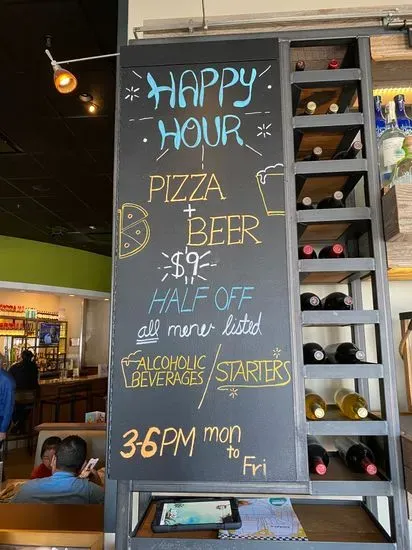 HAPPY
HOUR
PIZZA
+
BEER
$9
HALF OFF
all menu listed
ALCOHOLIC
BEVERAGES / STARTERS
3-6PM mon
to
Fri